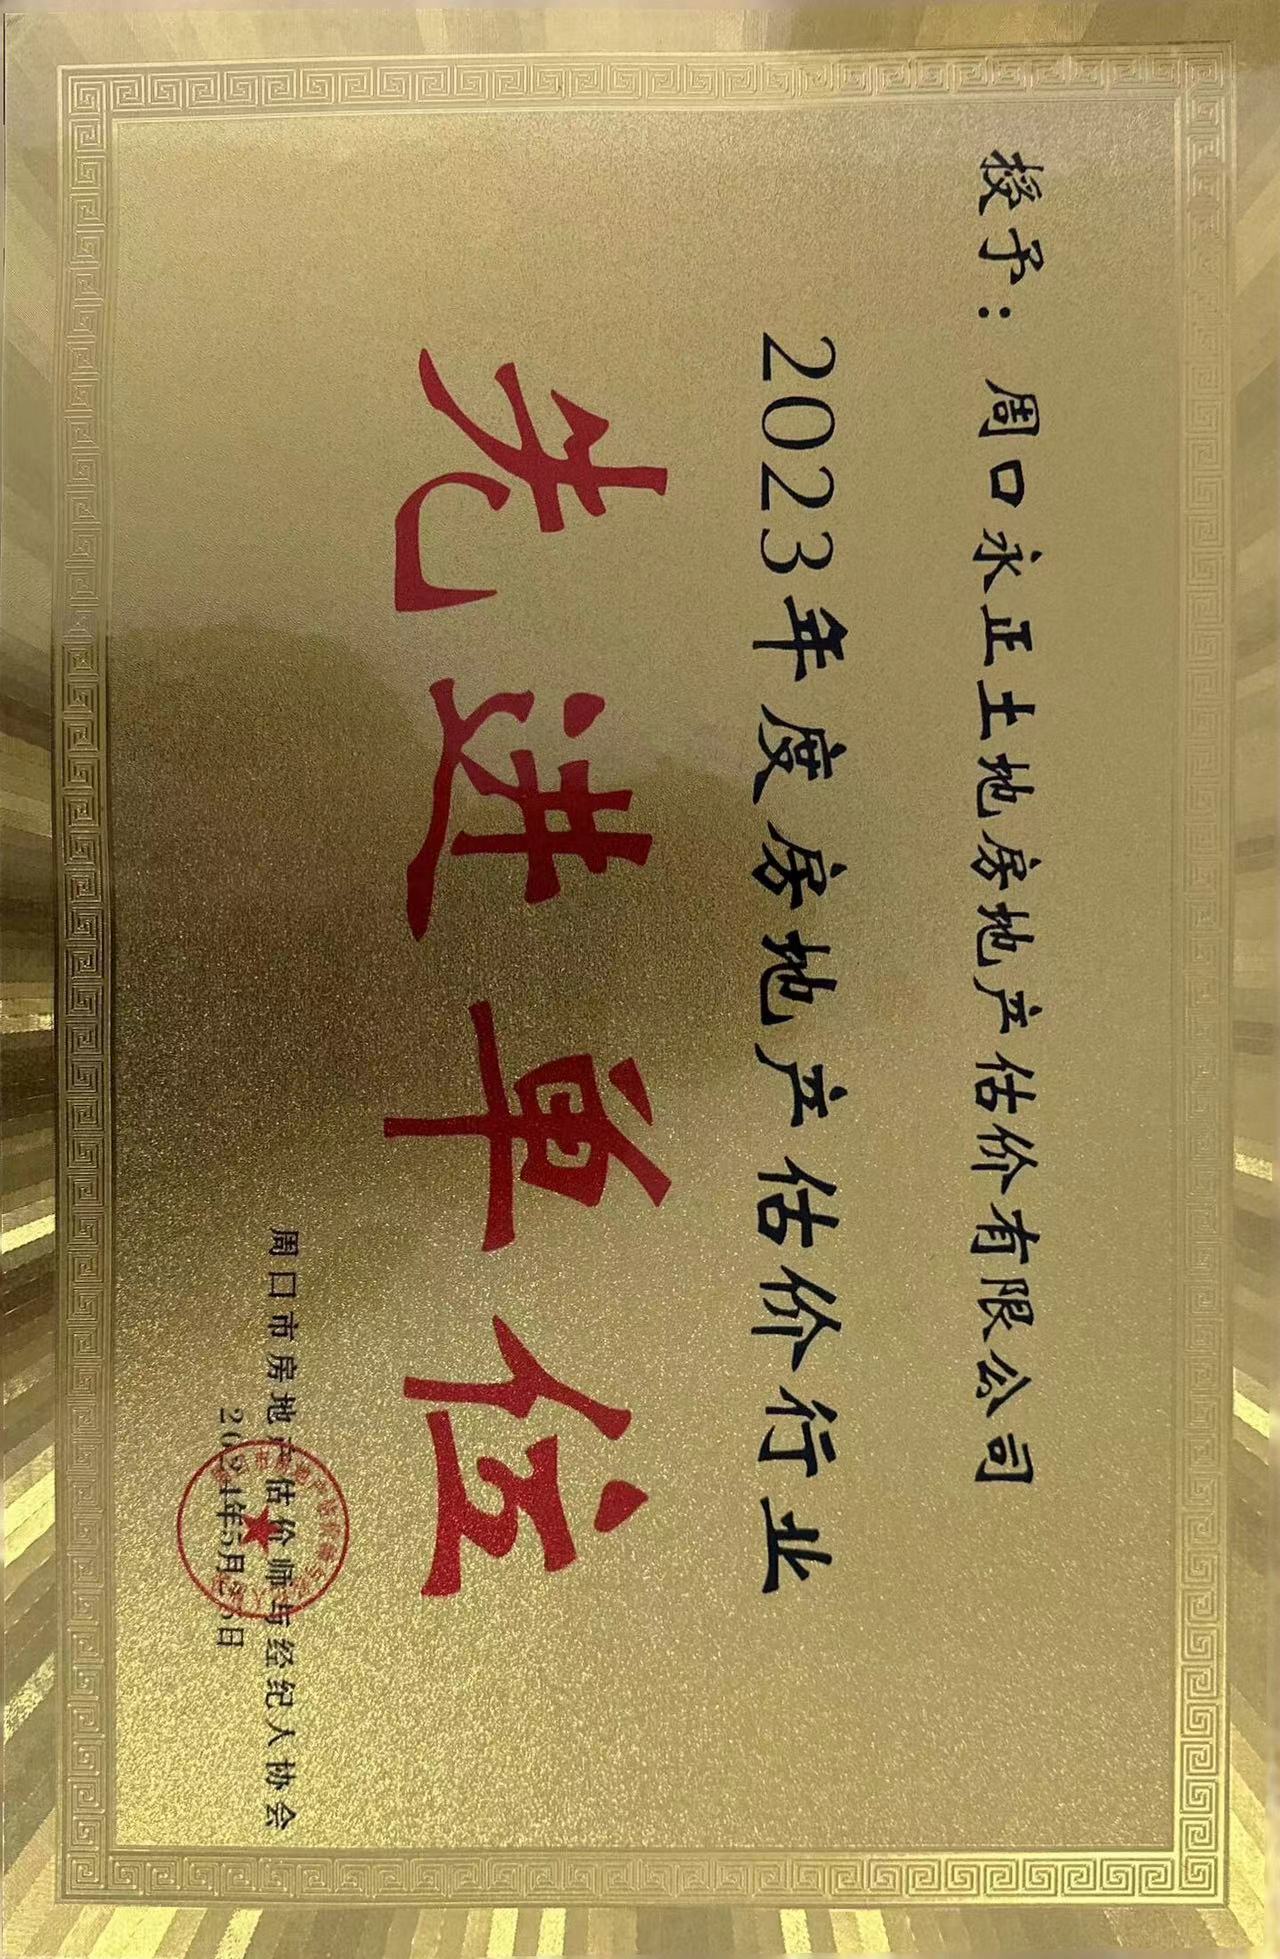 授予：周口永正土地房地产估价有限公司
2023年度房地产估价行业
先进单位
周口市房地产估价师与经纪人协会
2024年5月26日